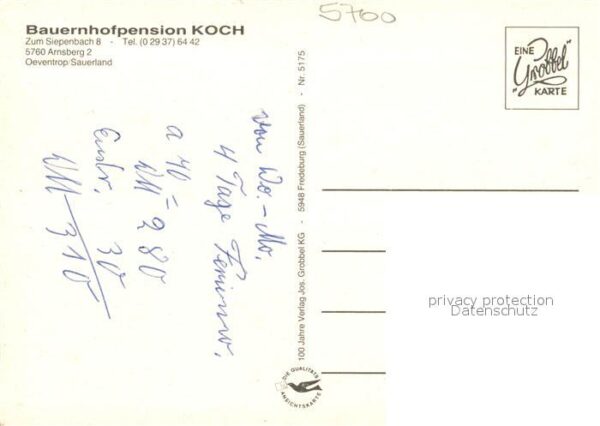 Bauernhofpension KOCH
Zum Siepenbach 8 - Tel. (0 29 37) 64 42
5760 Arnsberg 2
Oeventrop/Sauerland
5700
EINE
"Grobbel"
KARTE
von Wo.-Mo.
4 Tage
a 70 =
VM 280
30
VM 310
100 Jahre Verlag Jos. Grobbel KG - 5948 Fredeburg (Sauerland) - Nr. 5175
DIE QUALITÄTS
ANSICHTSKARTE
privacy protection
Datenschutz